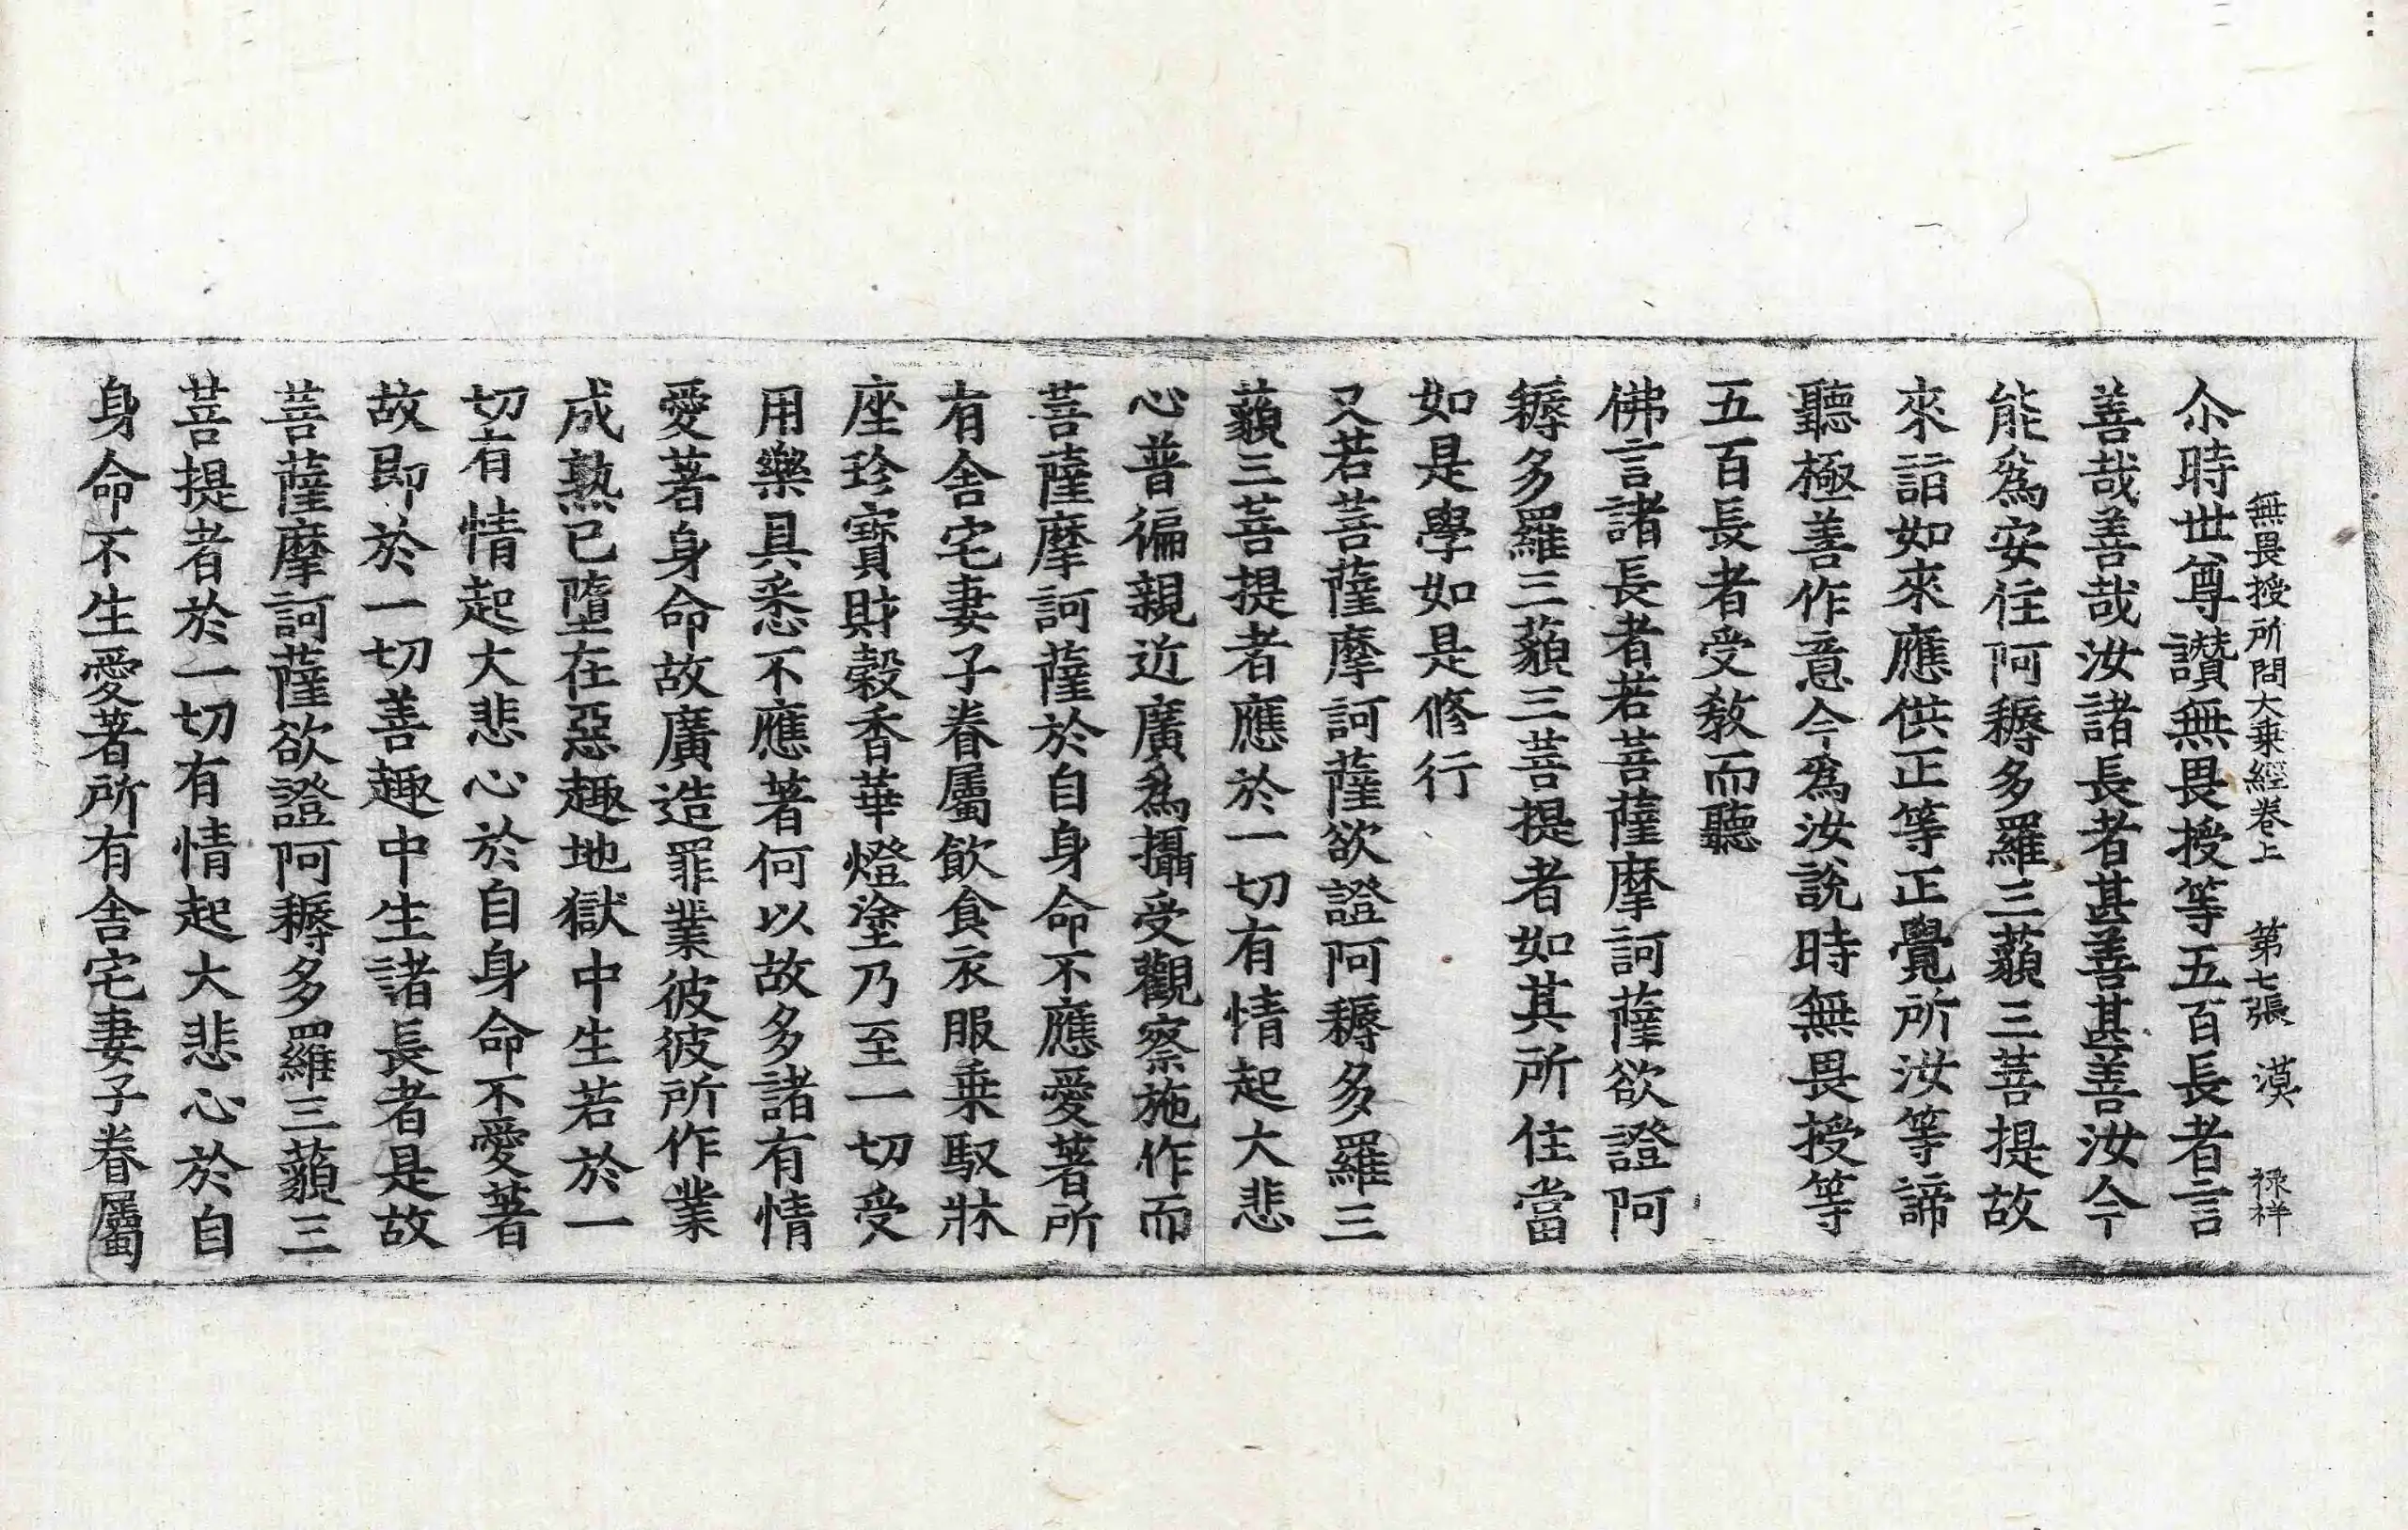 無畏授所問大乗經卷上 第七張 漠 禄祥
尒時世尊讚無畏授等五百長者言
善哉善哉汝諸長者甚善甚善汝今
能爲安住阿耨多羅三藐三菩提故
來詣如來應供正等正覺所汝等諦
聽極善作意今爲汝說時無畏授等
五百長者受教而聽
佛言諸長者若菩薩摩訶薩欲證阿
耨多羅三藐三菩提者如其所住當
如是學如是修行
又若菩薩摩訶薩欲證阿耨多羅三
藐三菩提者應於一切有情起大悲
心普徧親近廣爲攝受觀察施作而
菩薩摩訶薩於自身命不應愛著所
有舍宅妻子眷屬飲食衣服乗馭牀
座珍寶財穀香華燈塗乃至一切受
用樂具悉不應著何以故多諸有情
愛著身命故廣造罪業彼彼所作業
成熟已墮在惡趣地獄中生若於一
切有情起大悲心於自身命不愛著
故即於一切善趣中生諸長者是故
菩薩摩訶薩欲證阿耨多羅三藐三
菩提者於一切有情起大悲心於自
身命不生愛著所有舍宅妻子眷屬